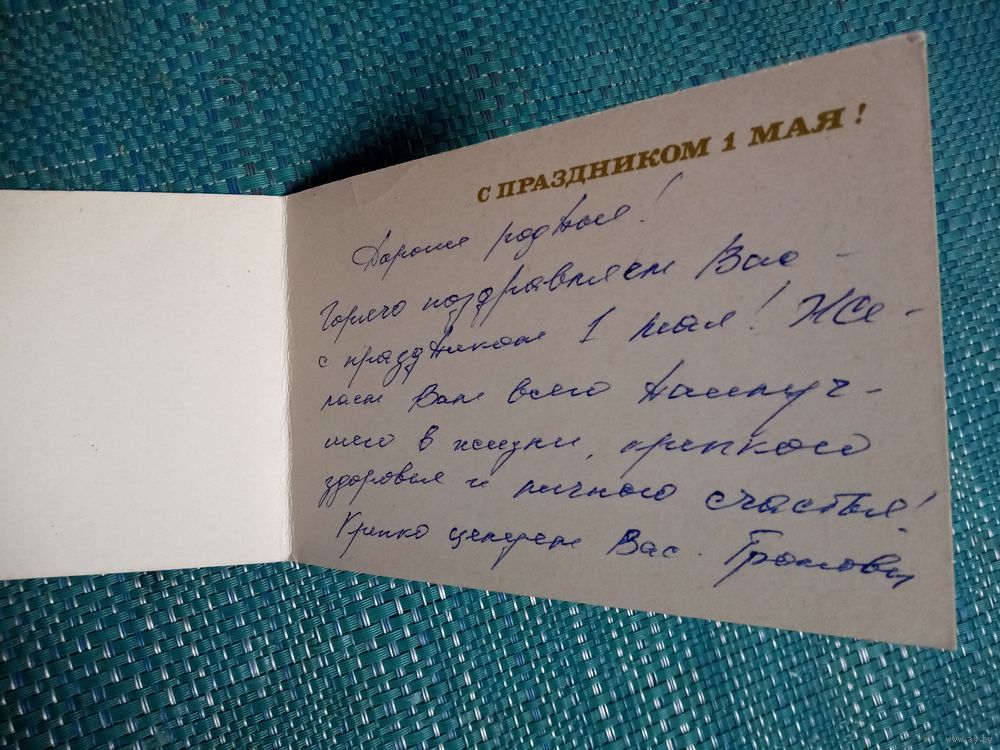 С ПРАЗДНИКОМ 1 МАЯ!
Дорогие родные!
Горячо поздравляем Вас
с праздником 1 мая! Же-
лаем Вам всего наилуч-
шего в жизни, крепкого
здоровья и личного счастья!
Крепко целуем Вас. Громовы
www.ay.by